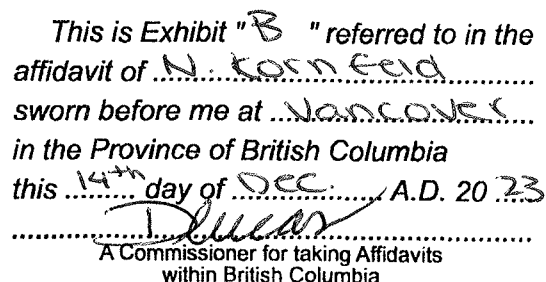 This is Exhibit "B" referred to in the
affidavit of N. Kornfeld
sworn before me at Vancover
in the Province of British Columbia
this 14th day of Dec. A.D. 20 23
A Commissioner for taking Affidavits
within British Columbia